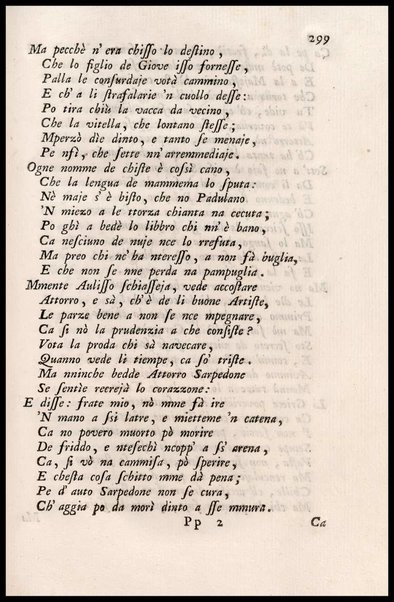 299
Ma pecchè n' era chisso lo destino,
Che lo figlio de Giove isso fornesse,
Palla le consurdaje votà cammino,
E ch' a li strafalarie 'n cuollo desse:
Po tira chiù la vacca da vecino,
Che la vitella, che lontano stesse;
Mperzò die dinto, e tanto se menaje,
Pe nsì, che sette nn' arremmediaje.
Ogne nomme de chiste è cossì cano,
Che la lengua de mammema lo sputa:
Nè maje s' è bisto, che no Padulano
'N miezo a le ttorza chianta na cecuta;
Po ghì a bedè lo libbro chi nn' è bano,
Ca nesciuno de nuje nce lo rrefuta,
Ma preo chi nc' ha nteresso, a non fà buglia,
E che non se nne perda na pampuglia.
Mmente Aulisso schiasseja, vede accostare
Attorro, e sà, ch' è de li buone Artiste,
Le parze bene a non se nce mpegnare,
Ca si nò la prudenzia a che consiste?
Vota la proda chi sà navecare,
Quanno vede li tiempe, ca so' triste.
Ma nninche bedde Attorro Sarpedone
Se sentìe recrejà lo corazzone:
E disse: frate mio, nò mme fà ire
'N mano a ssi latre, e mietteme 'n catena,
Ca no povero muorto pò morire
De friddo, e ntesechì ncopp' a ss' arena,
Ca, si vò na cammisa, pò sperire,
E chesta cosa schitto mme dà pena;
Pe d' auto Sarpedone non se cura,
Ch' aggia po da morì dinto a sse mmura.
Pp 2 Ca